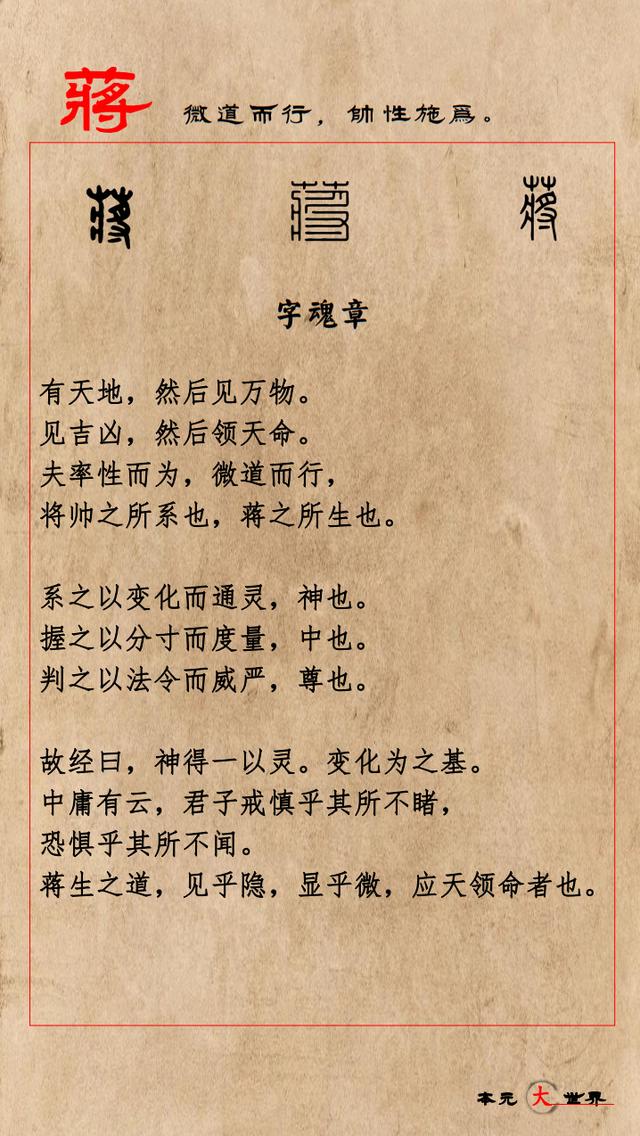 蔣 微道而行，帥性施爲。
蔣 蔣 蔣
字魂章
有天地，然后见万物。
见吉凶，然后领天命。
夫率性而为，微道而行，
将帅之所系也，蒋之所生也。
系之以变化而通灵，神也。
握之以分寸而度量，中也。
判之以法令而威严，尊也。
故经曰，神得一以灵。变化为之基。
中庸有云，君子戒慎乎其所不睹，
恐惧乎其所不闻。
蒋生之道，见乎隐，显乎微，应天领命者也。
本元大世界